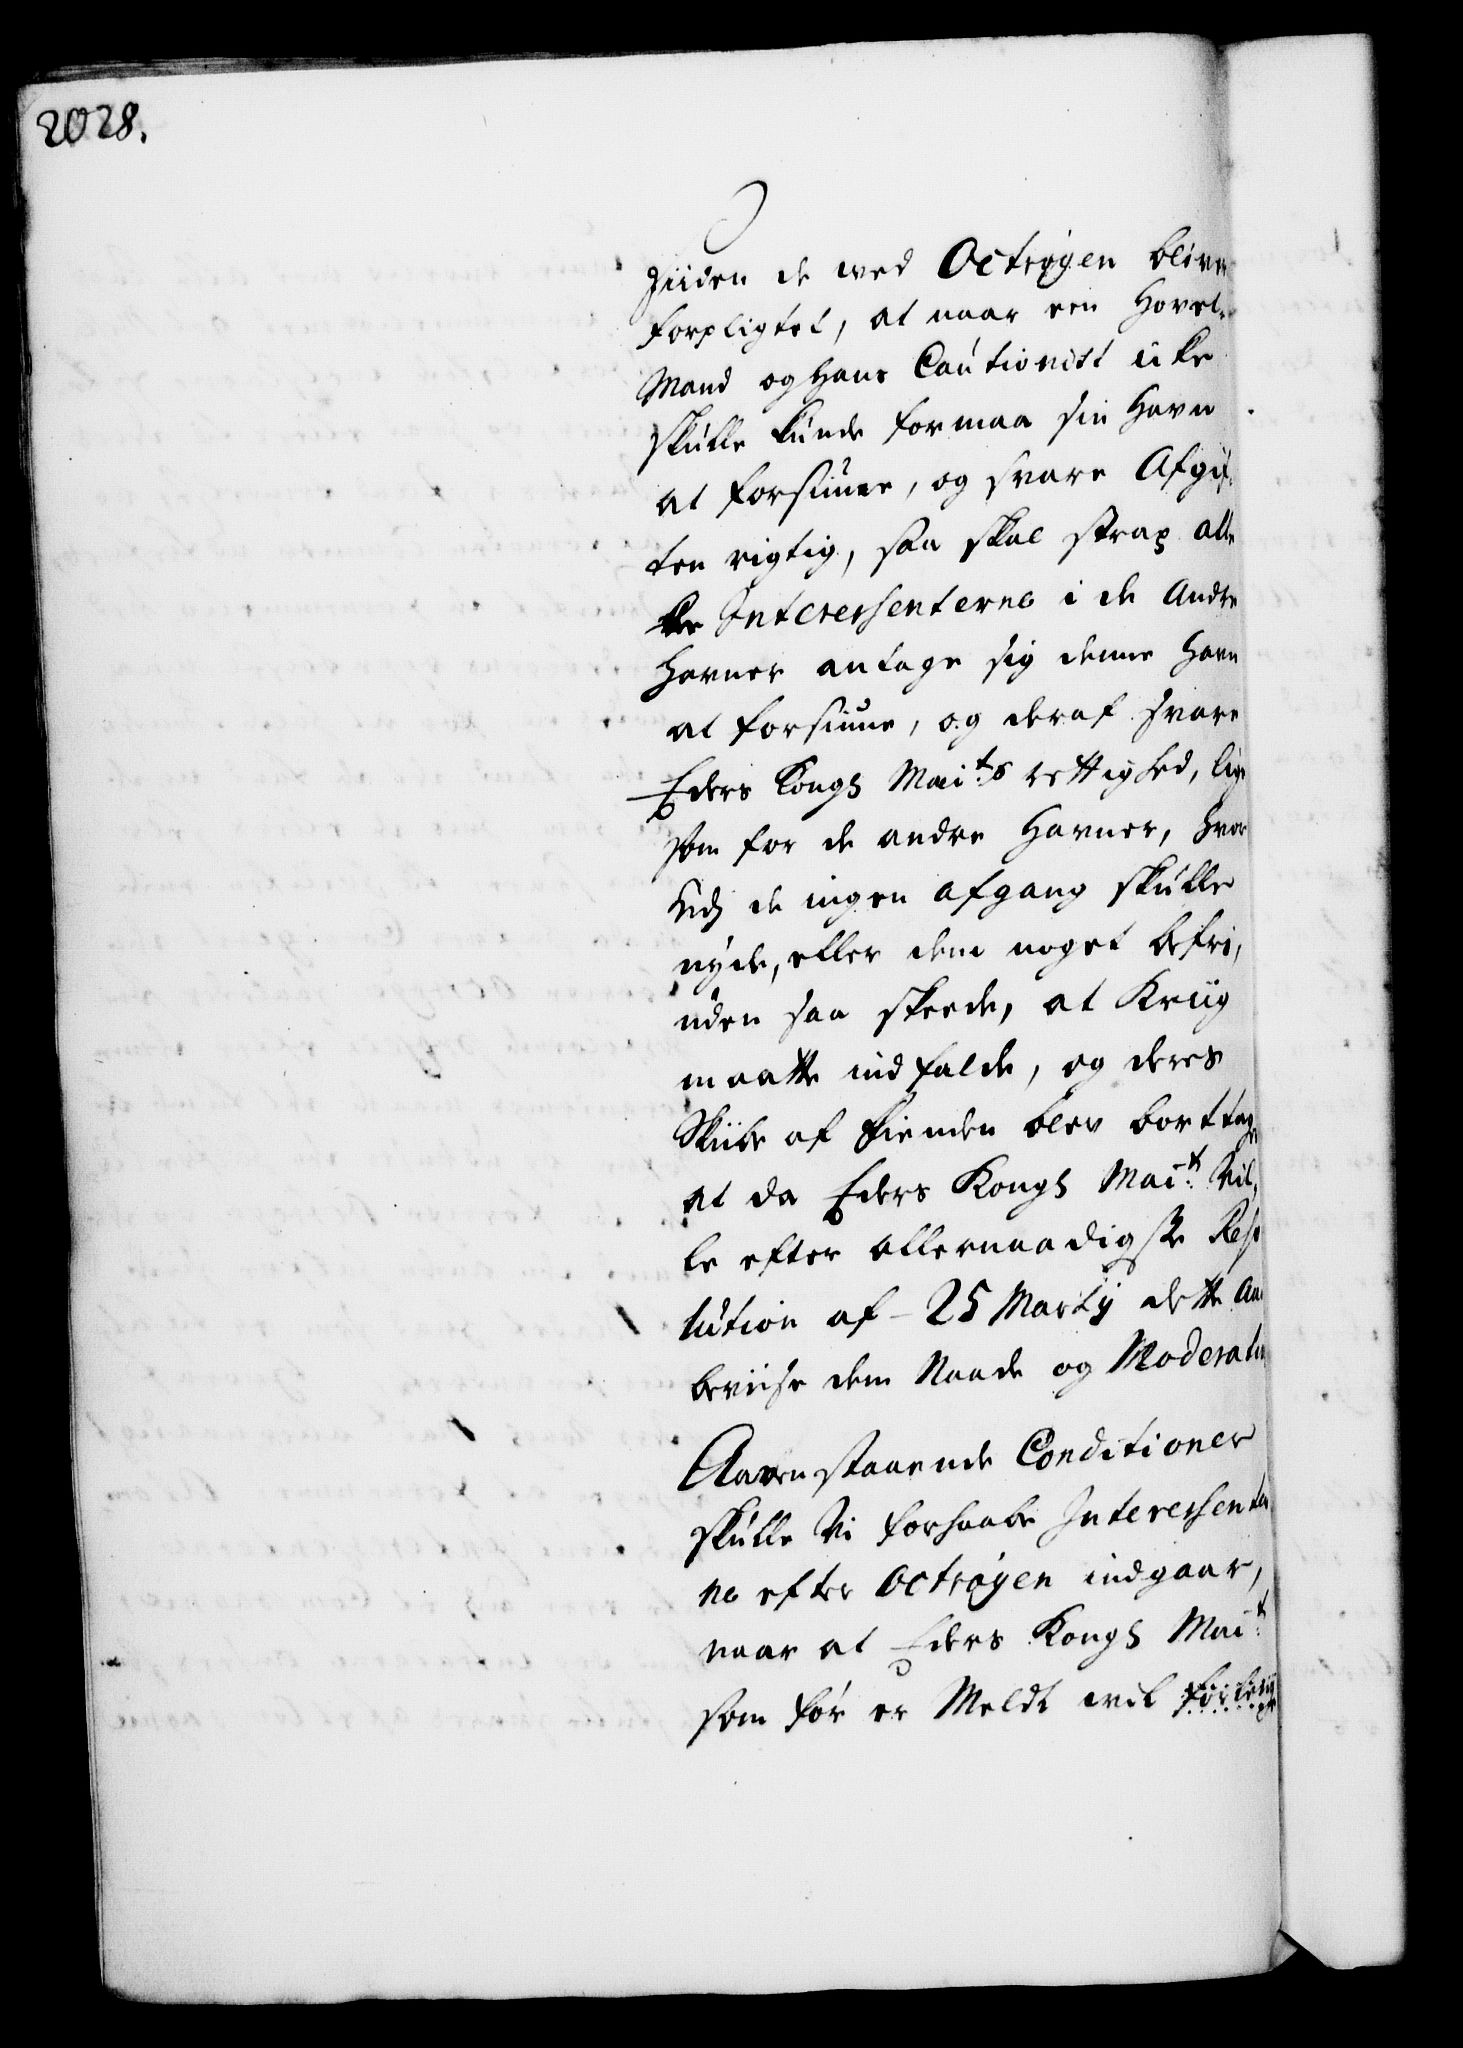 2028.
Siiden de wed Octrøyen bliver
forpligtet, at naar een Hovet-
Mand og hans Cautionist icke
skulle kunde formaa sin Havn
at forsiune, og svare Afgif-
ten rigtig, saa skal strax alle
Interessenterne i de Andre
Havner antage sig denne Havn
at forsiune, og deraf svare
Eders Kongs Mait:s rettighed, lige
som for de andre Havner, hvor
ved de ingen afgang skulle
nyde, eller dem noget befri,
uden saa skeede, at Kriig
maatte indfalde, og deres
Skiibe af Fienden blev borttage
at da Eders Kongs Mait: vil-
le efter allernaadigste Reso
lution af 25 Martij dette Aar
beviise dem Naade og Moderation
Aavenstaaende Conditioner
skulle Vi forhaabe Interessenter
ne efter Octrøyen indgaar,
naar at Eders Kongs Mait:
som før er Meldt wil